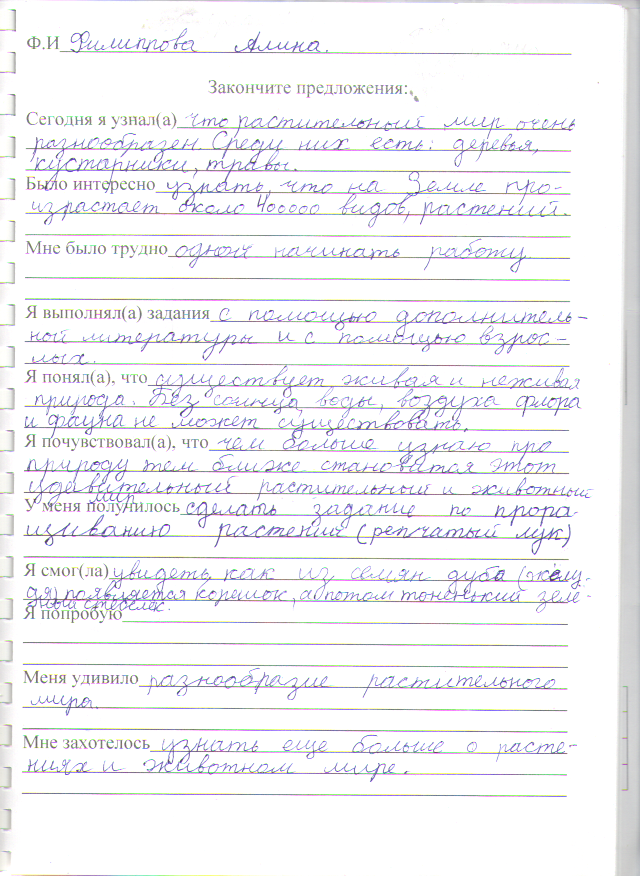 Ф.И Филиппова Алина.
Закончите предложения:
Сегодня я узнал(а) что растительный мир очень
разнообразен. Среди них есть: деревья,
кустарники, травы.
Было интересно узнать, что на Земле про-
израстает около 400000 видов, растений.
Мне было трудно одной начинать работу.
Я выполнял(а) задания с помощью дополнитель-
ной литературы и с помощью взрос-
лых.
Я понял(а), что существует живая и неживая
природа. Без солнца, воды, воздуха флора
и фауна не может существовать.
Я почувствовал(а), что чем больше узнаю про
природу тем ближе становится этот
удивительный растительный и животный
мир
У меня получилось сделать задание по прора-
щиванию растения (репчатый лук)
Я смог(ла) увидеть, как из семян дуба (желу-
дя) появляется корешок, а потом тоненький зеле-
ный стебелек.
Я попробую
Меня удивило разнообразие растительного
мира.
Мне захотелось узнать еще больше о расте-
ниях и животном мире.